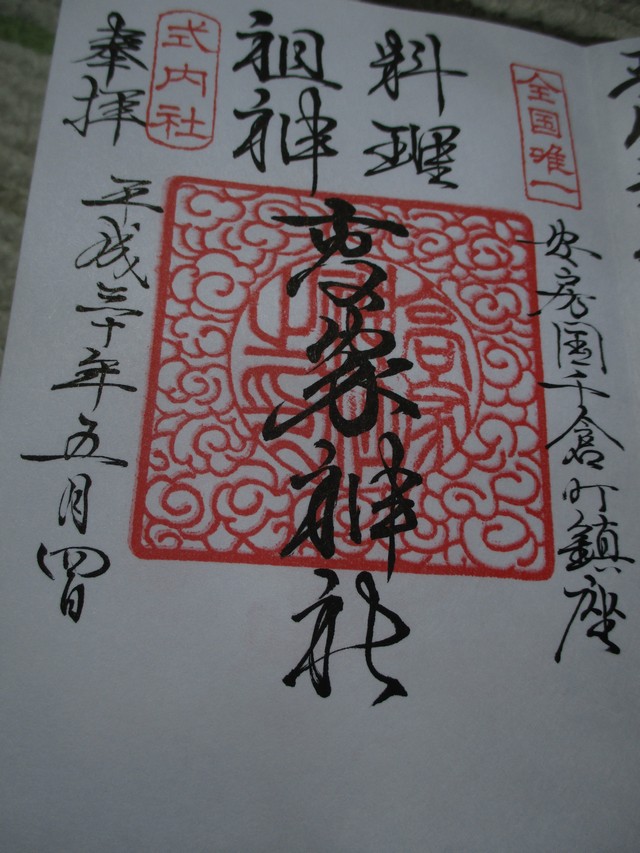 全国唯一
安房国千倉町鎮座
料理
祖神
高家神社
式内社
奉拝
平成三十年五月四日